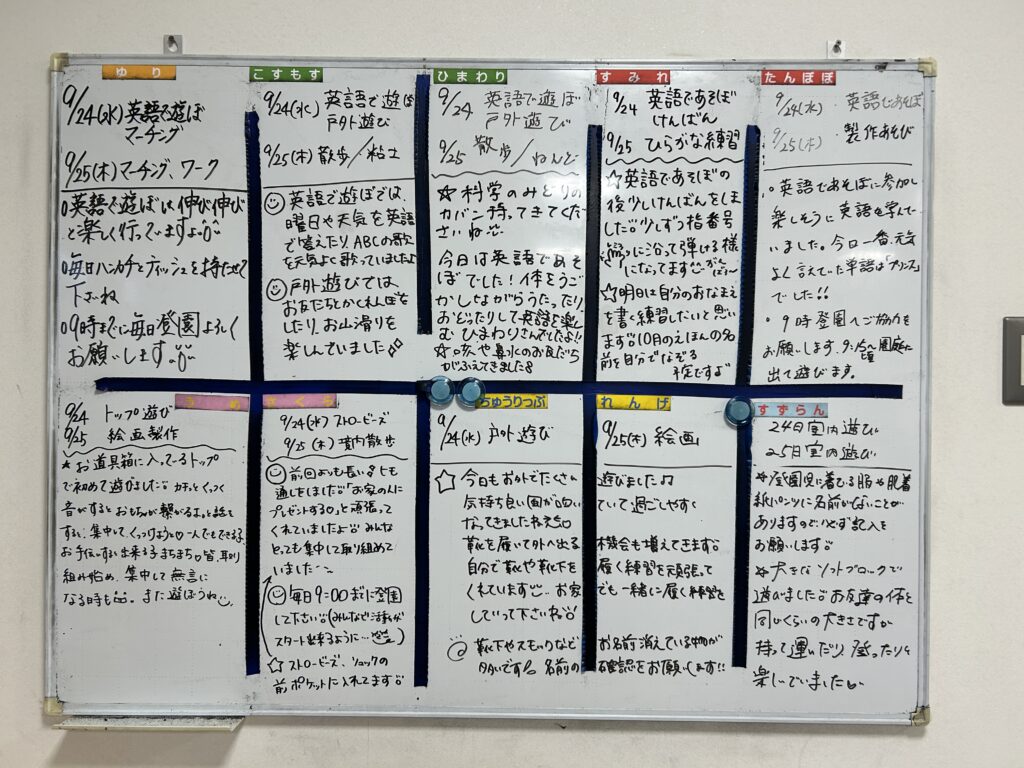 ゆり
9/24(水)英語で遊ぼ
マーチング
9/25(木)マーチング、ワーク
英語で遊ぼは伸び伸び
と楽しく行っていますよ
毎日ハンカチとティッシュを持たせて
下さいね
9時までに毎日登園よろしく
お願いします
こすもす
9/24(水) 英語で遊ぼ
戸外遊び
9/25(木)散歩/粘土
英語で遊ぼでは、
曜日や天気を英語
で答えたり、ABCの歌
を元気よく歌っていましたよ
戸外遊びでは
お友だちとかくれんぼを
したり、お山滑りを
楽しんでいました
ひまわり
9/24 英語で遊ぼ
戸外遊び
9/25 散歩/ねんど
☆科学のみどりの
カバン持ってきてくだ
さいね
今日は英語であそ
ぼでした!体をうご
かしながらうたったり
おどったりして英語を楽し
む ひまわりさんでしたよ!!
☆咳や鼻水のお友だち
がふえてきました
すみれ
9/24 英語であそぼ
けんばん
9/25 ひらがな練習
☆英語であそぼの
後少しけんばんをしま
した 少しずつ指番号
に沿って弾ける様
になってます
☆明日は自分のおなまえ
を書く練習したいと思い
ます 10月のえほんの名
前を自分でなぞる
予定ですよ
たんぽぽ
9/24(水) 英語であそぼ
9/25(木) 製作あそび
。英語であそぼに参加し
楽しそうに英語を学んで
いました。今日一番、元気
よく言えていた単語は「プリンス」
でした!!
。9時登園へご協力を
お願いします。9:15〜園庭に
出て遊びます。
うめ
9/24 トップ遊び
9/25 絵画製作
★お道具箱に入っているトップ
で初めて遊びました カチッとくっつく
音がするとおもちゃが繋がるよっと話を
すると、集中してくっつけようと 一人でもできる子
お手伝いすると出来る子まちまち 皆、取り
組み始め、集中して無言に
なる時も。また遊ぼうね
さくら
9/24(水)ストロービーズ
9/25(木)境内散歩
前回よりも長いひも
通しをしました「お家の人に
プレゼントする」と頑張って
くれていましたよ みんな
とっても集中して取り組めて
いました
毎日9:00までに登園
して下さい(みんなと活動が
スタート出来るように…)
☆ストロービーズ、リュックの
前ポケットに入れてます
ちゅうりっぷ
9/24(水)戸外遊び
れんげ
9/25(木) 絵画
☆今日もお外でたくさん遊びました♪
気持ち良い風が吹いていて過ごしやすく
なってきましたね
靴を履いて外へ出る機会も増えてきます
自分で靴や靴下を履く練習を頑張って
くれています お家でも一緒に履く練習を
していって下さいね
靴下やスモックなどお名前消えている物が
多いです 名前の確認をお願いします!!
すずらん
24日室内遊び
25日室内遊び
★登園児に着てる服や肌着
紙パンツに名前がないことが
ありますので必ず記入を
お願いします
★大きなソフトブロックで
遊びました お友達の体と
同じくらいの大きさですが
持って運んだり登ったりと
楽しんでいました